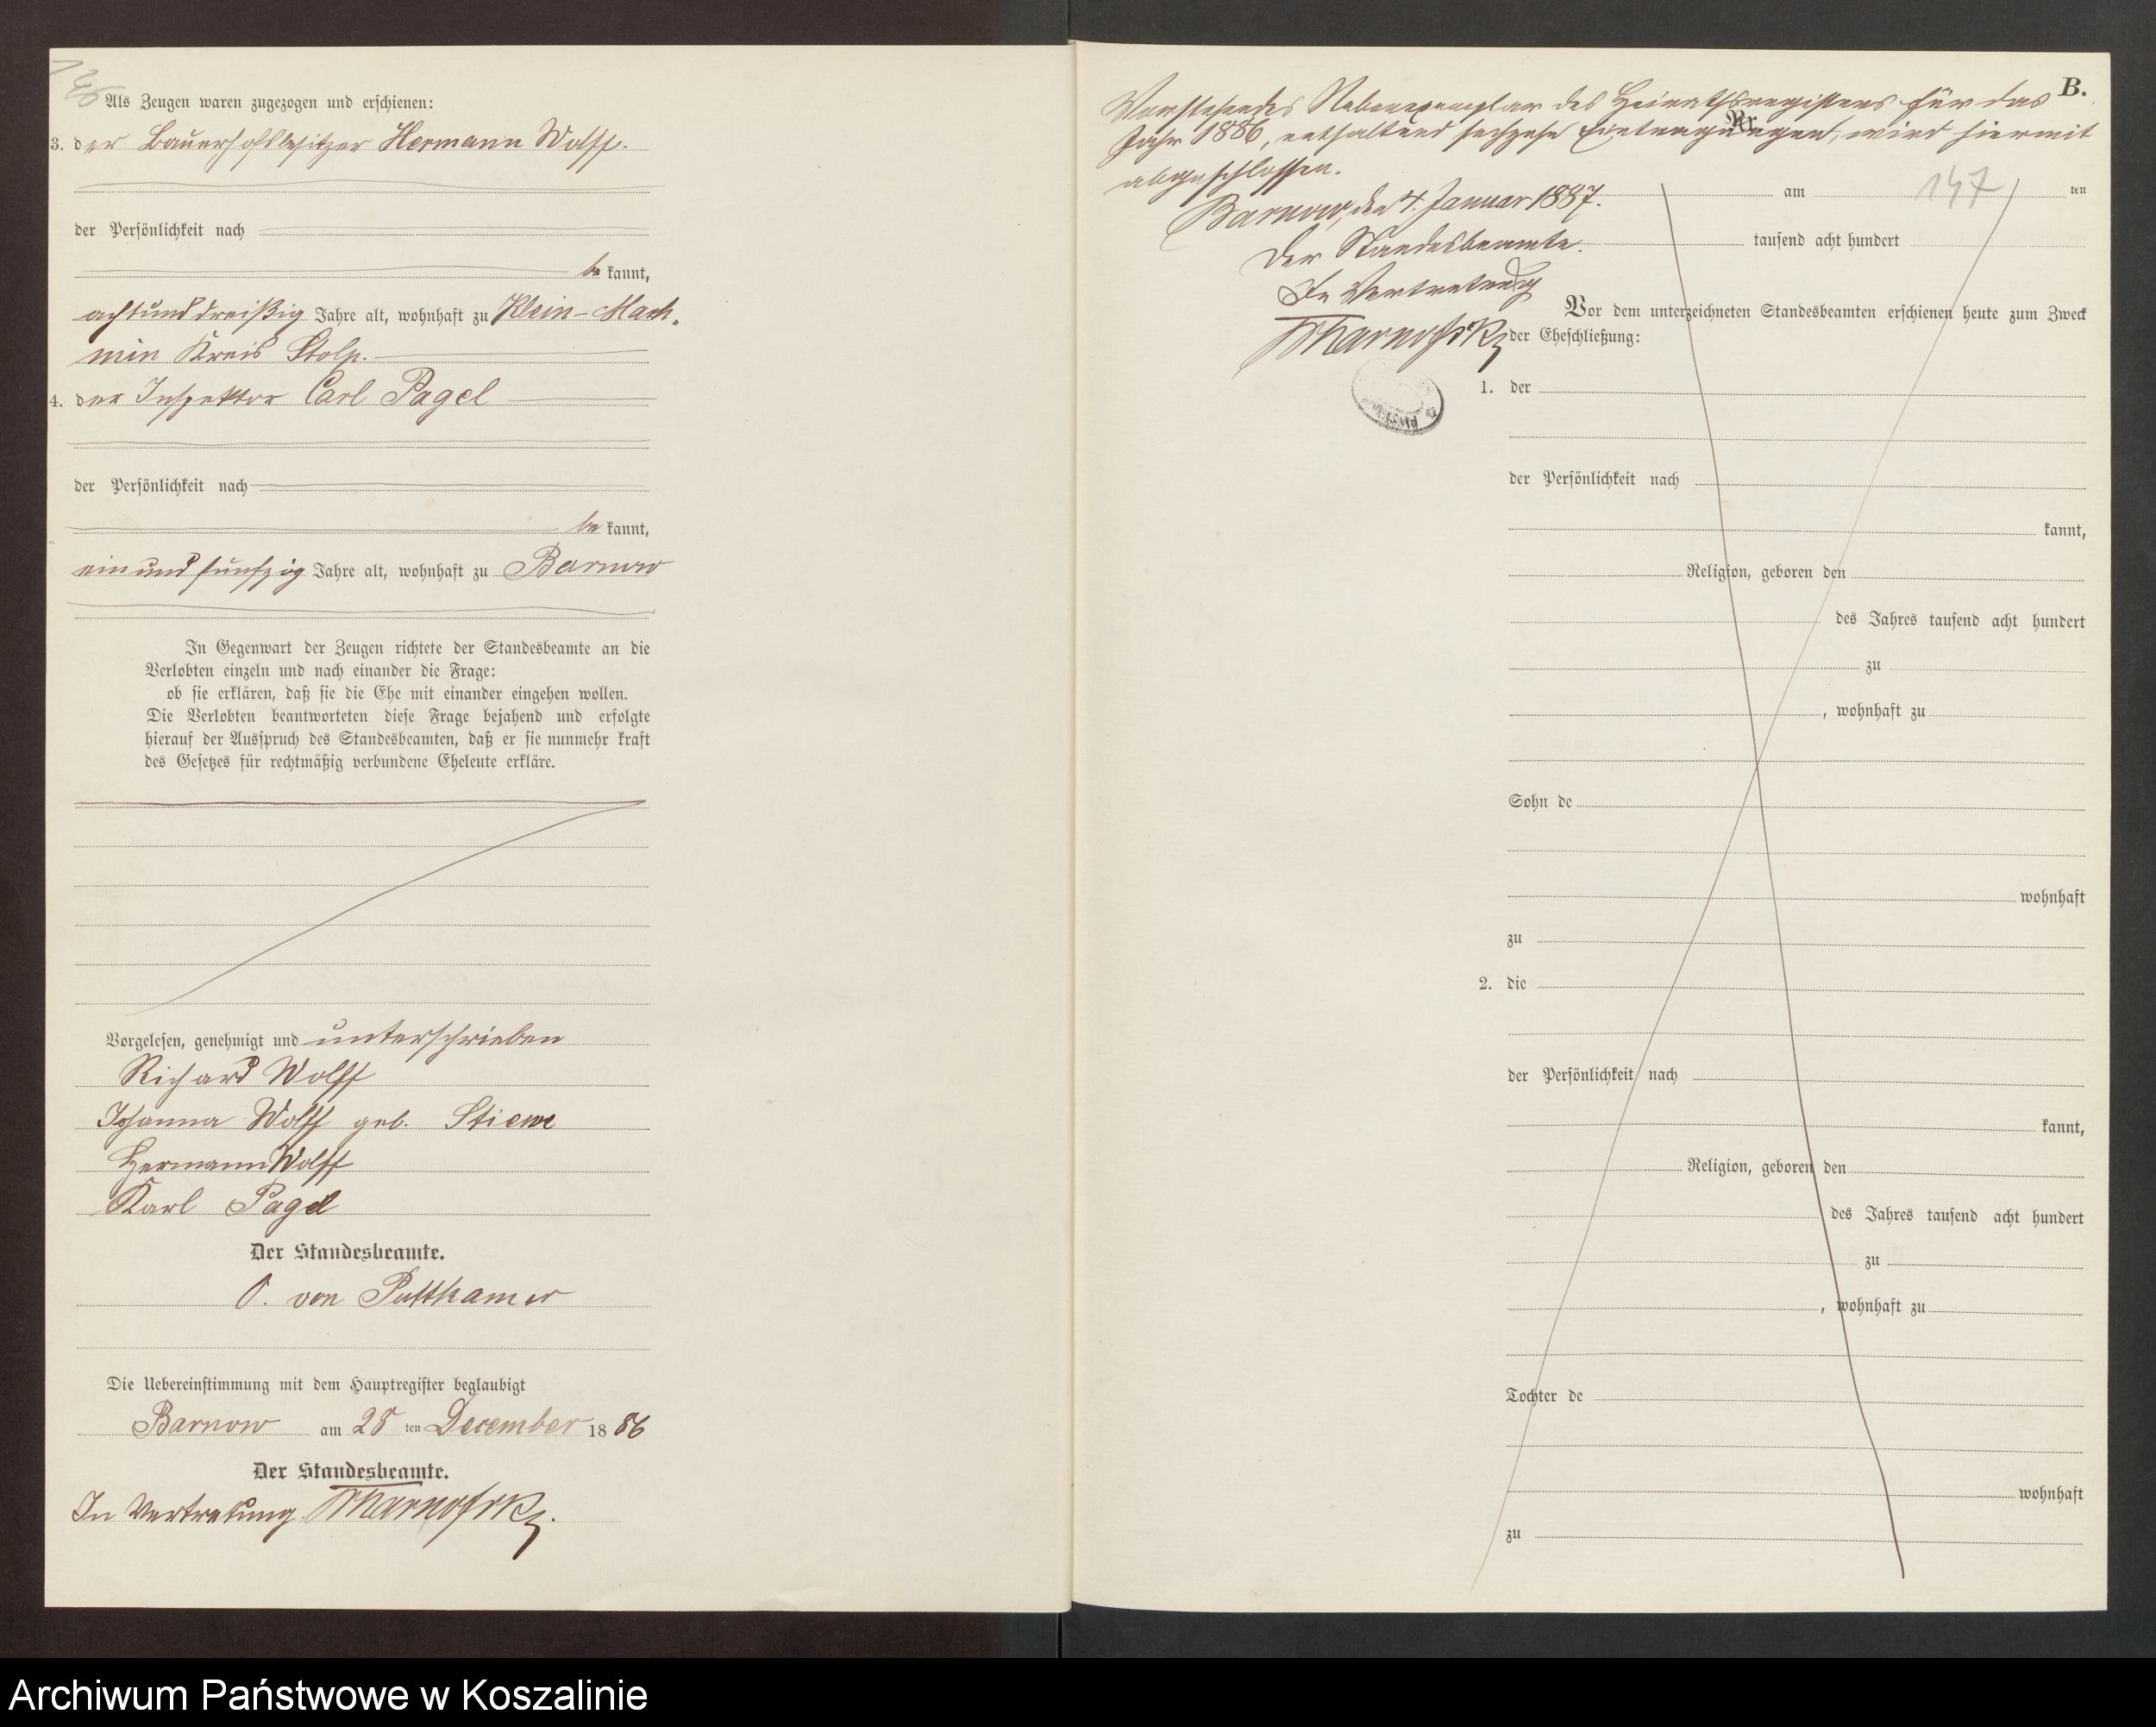 Als Zeugen waren zugezogen und erschienen:
3. der Bauerhofsbesitzer Hermann Wolff.
der Persönlichkeit nach
be kannt,
achtunddreißig Jahre alt, wohnhaft zu Klein-Mach-
min Kreis Stolp.
4. der Inspektor Carl Pagel
der Persönlichkeit nach
be kannt,
einundfünfzig Jahre alt, wohnhaft zu Barnow
In Gegenwart der Zeugen richtete der Standesbeamte an die
Verlobten einzeln und nach einander die Frage:
ob sie erklären, daß sie die Ehe mit einander eingehen wollen.
Die Verlobten beantworteten diese Frage bejahend und erfolgte
hierauf der Ausspruch des Standesbeamten, daß er sie nunmehr kraft
des Gesetzes für rechtmäßig verbundene Eheleute erkläre.
Vorgelesen, genehmigt und unterschrieben
Richard Wolff
Johanna Wolff geb. Stiewe
Hermann Wolff
Karl Pagel
Der Standesbeamte.
O. von Puttkamer
Die Uebereinstimmung mit dem Hauptregister beglaubigt
Barnow am 28 ten December 18 86
Der Standesbeamte.
In Vertretung
B.
Vorstehendes Nebenexemplar des Heirathsregisters für das
Jahr 1886, enthaltend sechzehn Eintragungen, wird hiermit
abgeschlossen.
Nr.
147
Barnow, den 4. Januar 1887.
am ten
Der Standesbeamte.
tausend acht hundert
In Vertretung
Vor dem unterzeichneten Standesbeamten erschienen heute zum Zweck
der Eheschließung:
1. der
der Persönlichkeit nach
kannt,
Religion, geboren den
des Jahres tausend acht hundert
zu
, wohnhaft zu
Sohn de
wohnhaft
zu
2. die
der Persönlichkeit nach
kannt,
Religion, geboren den
des Jahres tausend acht hundert
zu
, wohnhaft zu
Tochter de
wohnhaft
zu
Archiwum Państwowe w Koszalinie